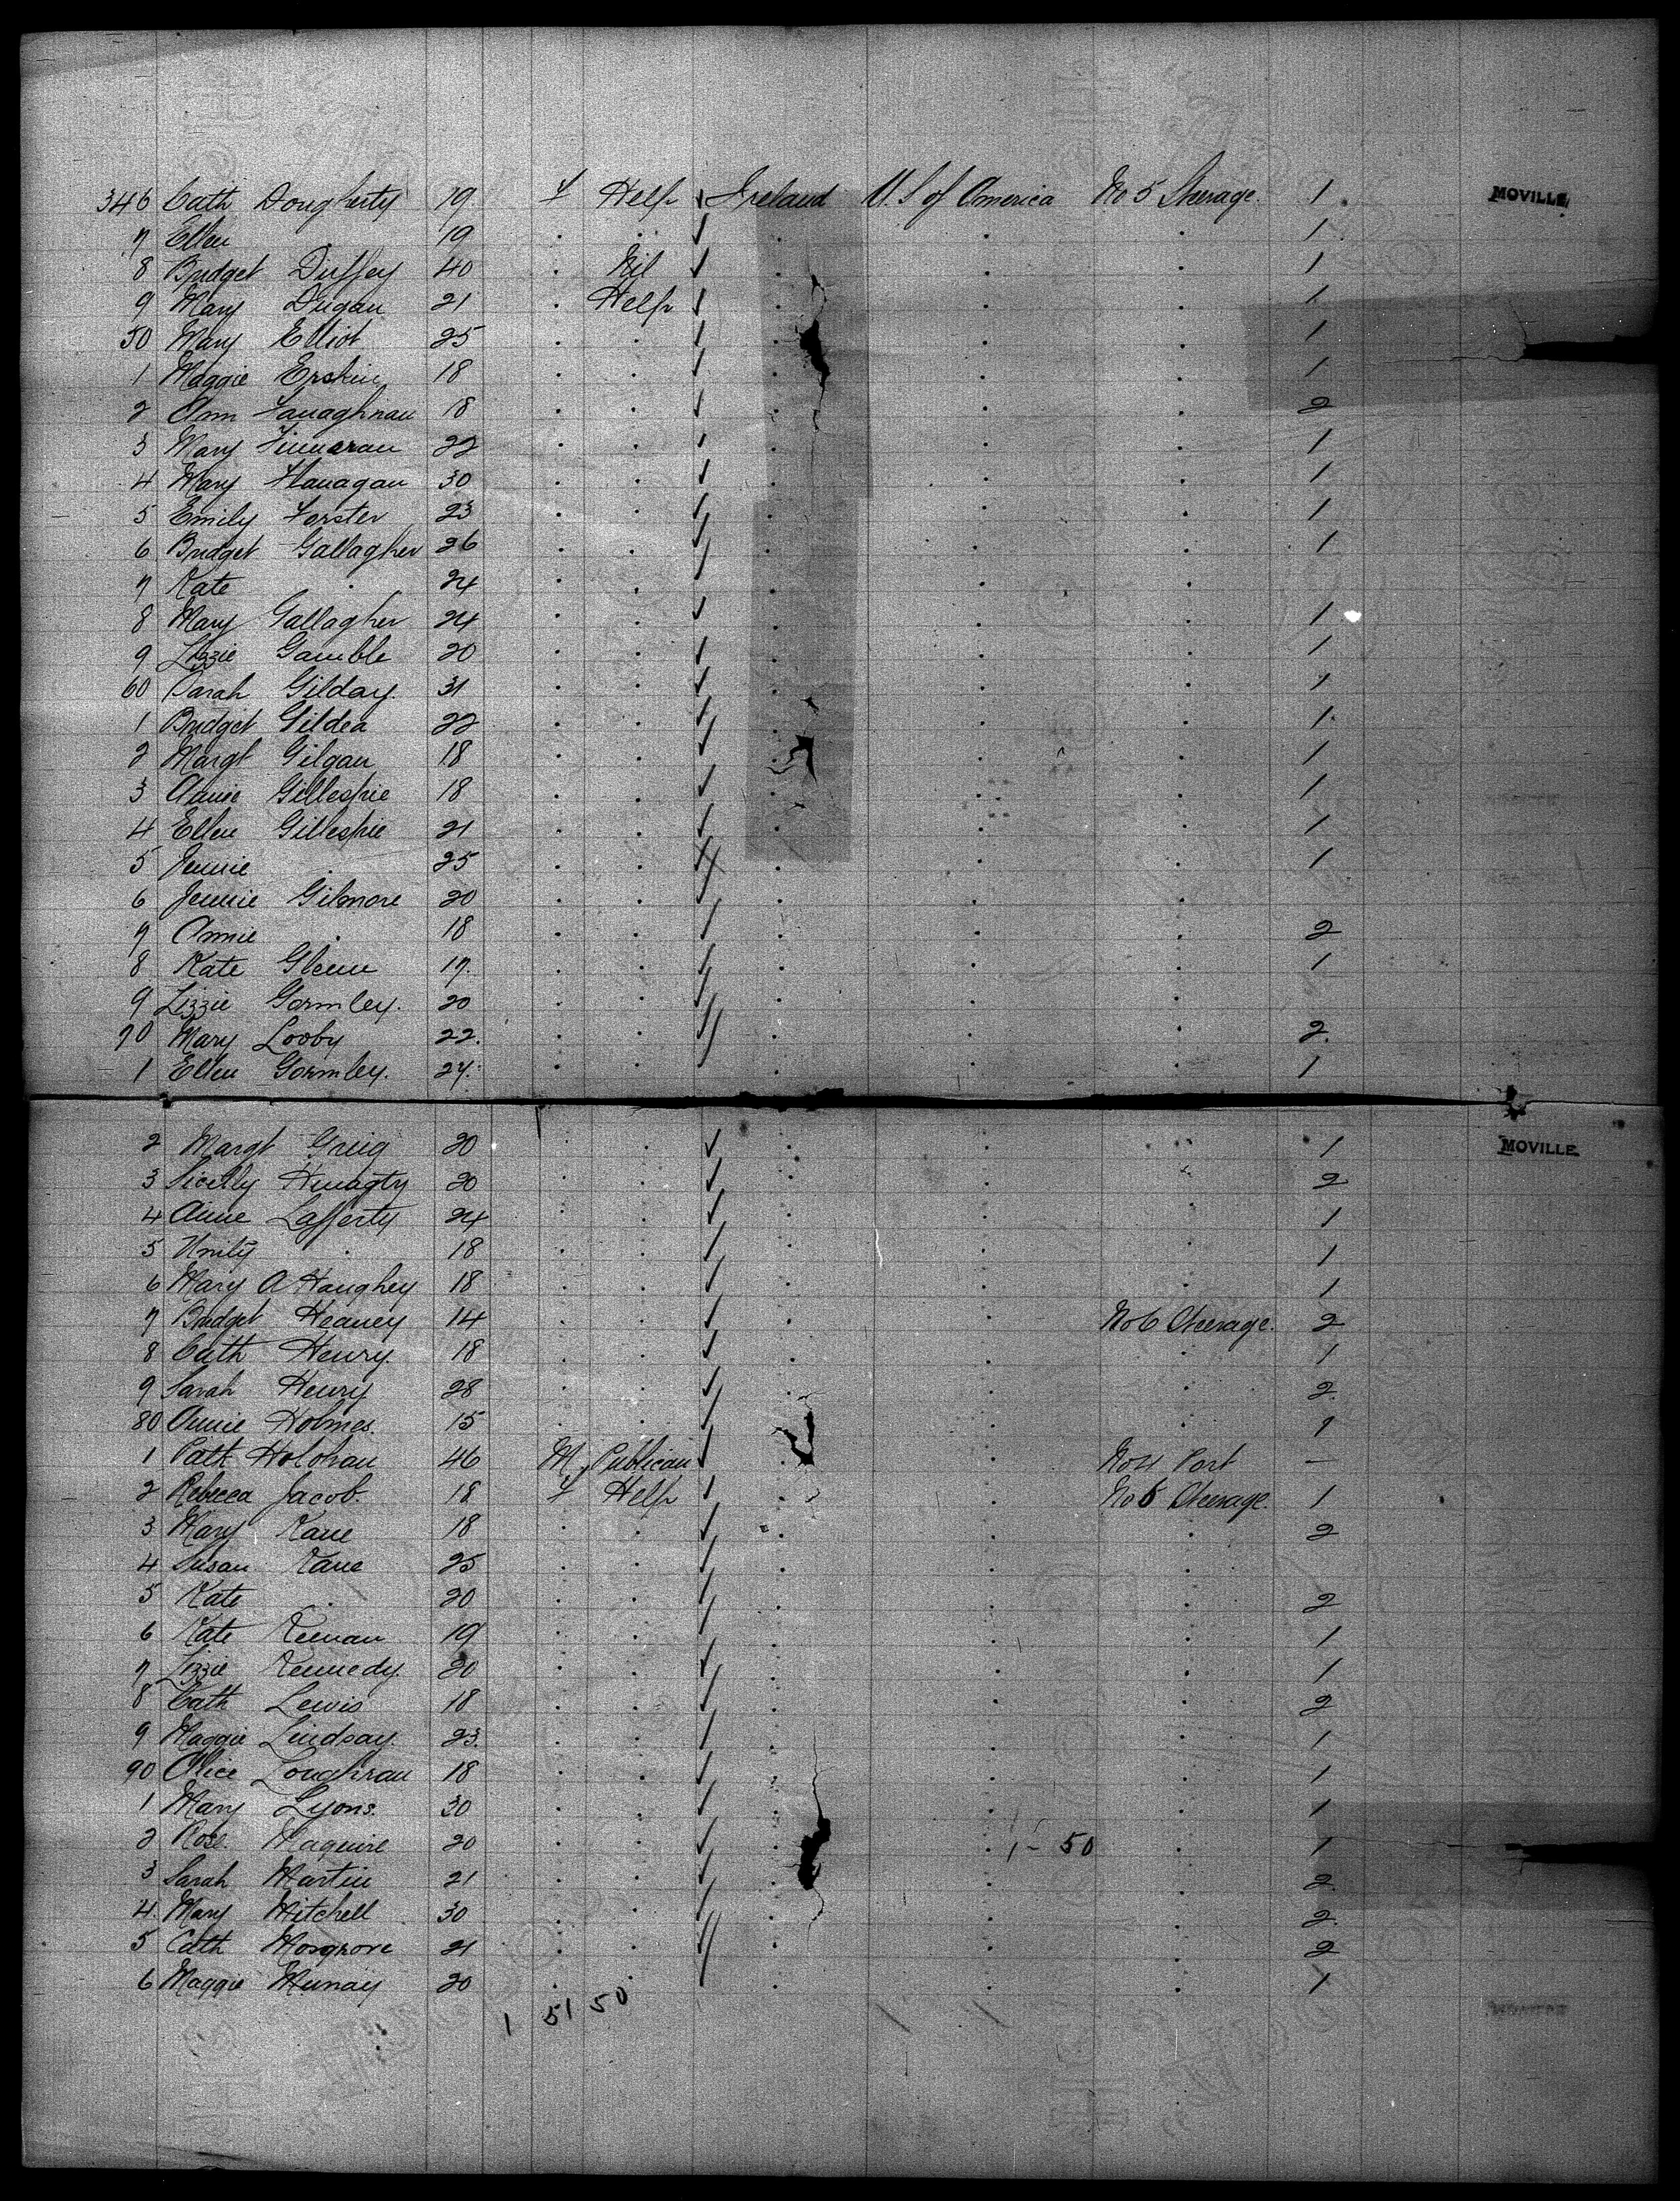 346 Cath Dougherty 19 F Help ✓ Ireland U.S of America No 5 Steerage. 1 MOVILLE
7 Ellen . 19 . . ✓ . . . 1
8 Bridget Duffey 40 . Nil ✓ . . . 1
9 Mary Dugan 21 . Help ✓ . . . 1
50 Mary Elliot 25 . . ✓ . . . 1
1 Maggie Erskin 18 . . ✓ . . . 1
2 Ann Fanaghnan 18 . . ✓ . . . 2
3 Mary Finnaran 22 . . ✓ . . . 1
4 Mary Flanagan 30 . . ✓ . . . 1
5 Emily Forster 23 . . ✓ . . . 1
6 Bridget Gallagher 26 . . ✓ . . . 1
7 Kate . 24 . . ✓ . . .
8 Mary Gallagher 24 . . ✓ . . . 1
9 Lizzie Gamble 20 . . ✓ . . . 1
60 Sarah Gilday. 31 . . ✓ . . . 1
1 Bridget Gildea 22 . . ✓ . . . 1
2 Margt Gilgan 18 . . ✓ . . . 1
3 Annie Gillespie 18 . . ✓ . . . 1
4 Ellen Gillespie 21 . . ✓ . . . 1
5 Jennie . 25 . . ✓ . . . 1
6 Jennie Gilmore 20 . . ✓ . . .
7 Annie . 18 . . ✓ . . . 2
8 Kate Glenn 17. . . ✓ . . . 1
9 Lizzie Gormley. 20 . . ✓ . . .
70 Mary Looby 22. . . ✓ . . . 2.
1 Ellen Gormley. 24. . . ✓ . . . 1
2 Margt Greig 20 . . ✓ . . . 1 MOVILLE
3 20 . . ✓ . . . 2
4 Anne Lafferty 24 . . ✓ . . . 1
5 Unity . 18 . . ✓ . . . 1
6 Mary A Haughey 18 . . ✓ . . . 1
7 Bridget Heaney 14 . . ✓ . . No 6 Steerage. 2
8 Cath Henry. 18 . . ✓ . . . 1
9 Sarah Henry 28 . . ✓ . . . 2.
80 Annie Holmes. 15 . . ✓ . . . 1
1 Patk Holohan 46 M. Publican ✓ . . No 4 Port —
2 Rebecca Jacob. 18 F Help ✓ . . No 6 Steerage. 1
3 Mary Kane 18 . . ✓ . . . 2
4 Susan Kane 25 . . ✓ . . .
5 Kate . 20 . . ✓ . . . 2
6 Kate Keenan 19 . . ✓ . . . 1
7 Lizzie Kennedy. 20 . . ✓ . . . 1
8 Cath Lewis 18 . . ✓ . . . 2
9 Maggie Lindsay. 23. . . ✓ . . . 1
90 Alice Loughran 18 . . ✓ . . . 1
1 Mary Lyons. 30 . . ✓ . . . 1
2 Rose. Maguire 20 . . ✓ . 1 - 50 . 1
3 Sarah Martin 21 . . ✓ . . . 2
4. Mary Mitchell 30 . . ✓ . . . 2.
5 Cath Mosgrove 21 . . ✓ . . . 2
6 Maggie Murray 20 . . ✓ . . . 1
1 51 50